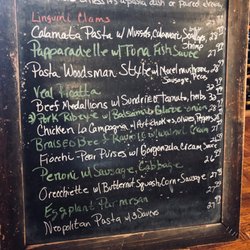 a pasta dish or paired
Linguini Clams
Calamata Pasta w/ Mussels, Calamari, Scallops, 28
Shrimp
Papparadelle w/ Tuna Fish Sauce
Pasta Woodsman Style w/ Morel mushrooms,
Sausage, Peas
Veal Picatta
Beef Medallions w/ Sundried Tomato, herbs 30
Pork Ribeye w/ Balsamic Glaze onion
Chicken La Campagna w/ Artichokes, Olives, Peppers
Braised Beef Ravioli w/ walnut Cream
Fiocchi-Pear Purses w/ Gorgonzola Cream Sauce 26
Penoni w/ Sausage, Cabbage
Orecchiette w/ Butternut Squash, Corn + Sausage 27
Eggplant Parmesan
Neopolitan Pasta w/ 3 Sauces